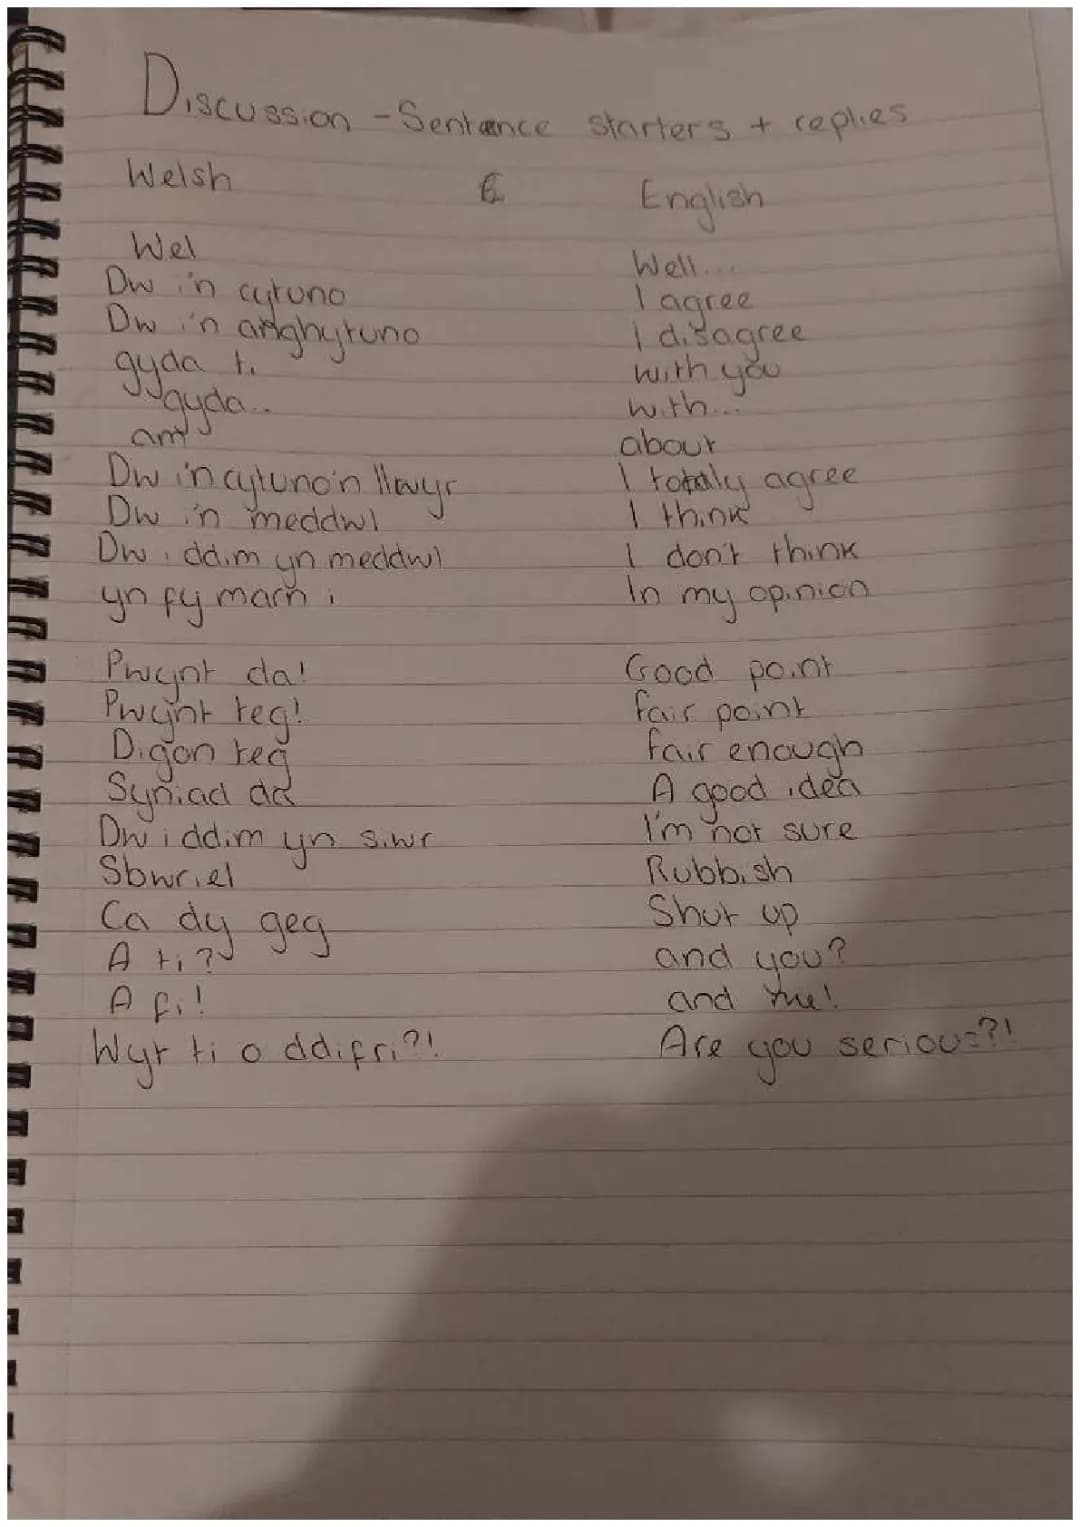 Discussion - Sentence starters + replies
Welsh English
Wel Well...
Dw i'n cytuno I agree
Dw i'n anghytuno I disagree
gyda ti with you
gyda.. with...
am about
Dw i'n cytuno'n llwyr I totaly agree
Dw i'n meddwl I think
Dw i ddim yn meddwl I don't think
yn fy marn i In my opinion
Pwynt da! Good point
Pwynt teg! fair point
Digon teg fair enough
Syniad da A good idea
Dw i ddim yn siwr I'm not sure
Sbwriel Rubbish
Ca dy geg Shut up
A ti? and you?
A fi! and me!
Wyt ti o ddifri?! Are you serious?!